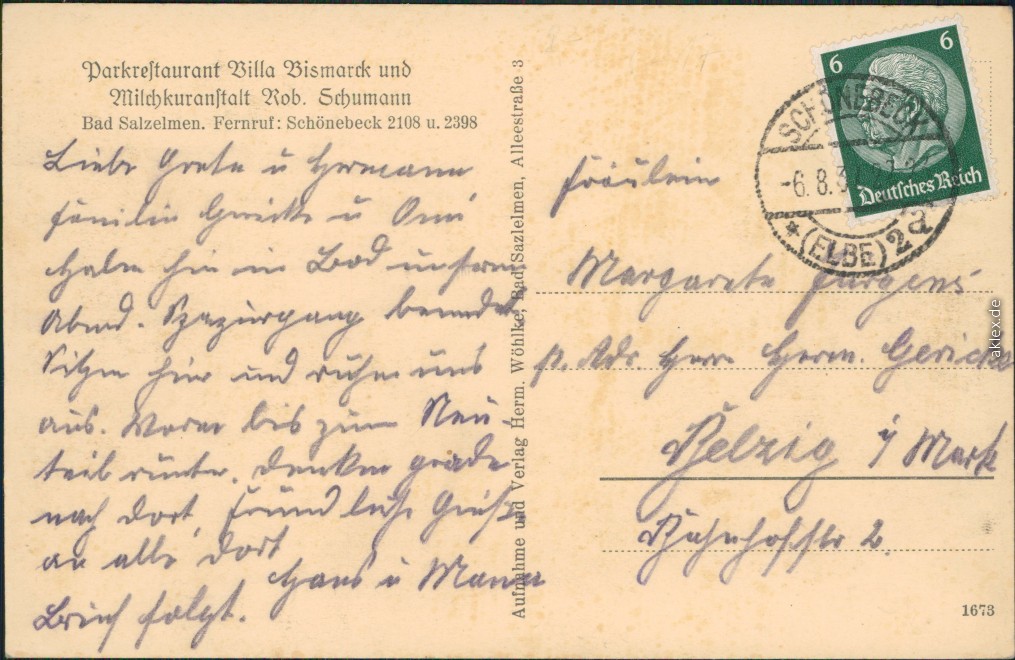 Parkrestaurant Villa Bismarck und
Milchkuranstalt Rob. Schumann
Bad Salzelmen. Fernruf: Schönebeck 2108 u. 2398
Liebe Grete u Hermann
Familie Gericke u Omi
Haben hier in Bad unsern
Abend-Spaziergang beendet
Sitzen hier und ruhen uns
aus. Waren bis zum
denken grade
nach dort, Freundliche Grüße
an alle dort
Hans u
Brief folgt.
Aufnahme und Verlag Herm. Wöhlke, Bad Sazlelmen, Alleestraße 3
6 6
Deutsches Reich
SCHÖNEBECK
-6.8.3
* (ELBE) 2a
Fräulein
Margarete Jürgens
p. Adr. Herrn Herm. Gericke
Belzig i/ Mark
Bahnhofstr 2.
1673
aklex.de